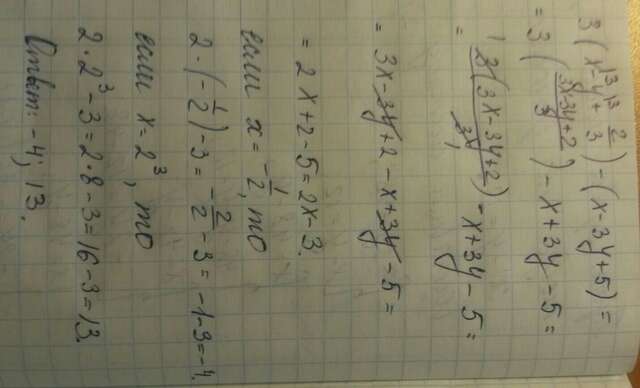 3(x-y+2/3)-(x-3y+5)=
=3((3x-3y+2)/3)-x+3y-5=
=3(3x-3y+2)/3-x+3y-5=
=3x-3y+2-x+3y-5=
=2x+2-5=2x-3.
если x=-1/2, то
2·(-1/2)-3=-2/2-3=-1-3=-4.
если x=2³, то
2·2³-3=2·8-3=16-3=13.
Ответ: -4; 13.